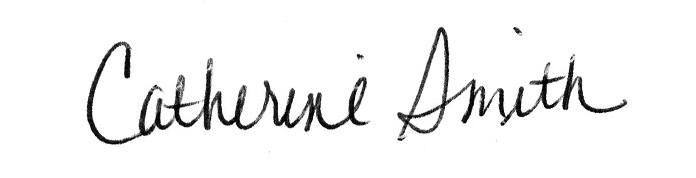 Catherine Smith